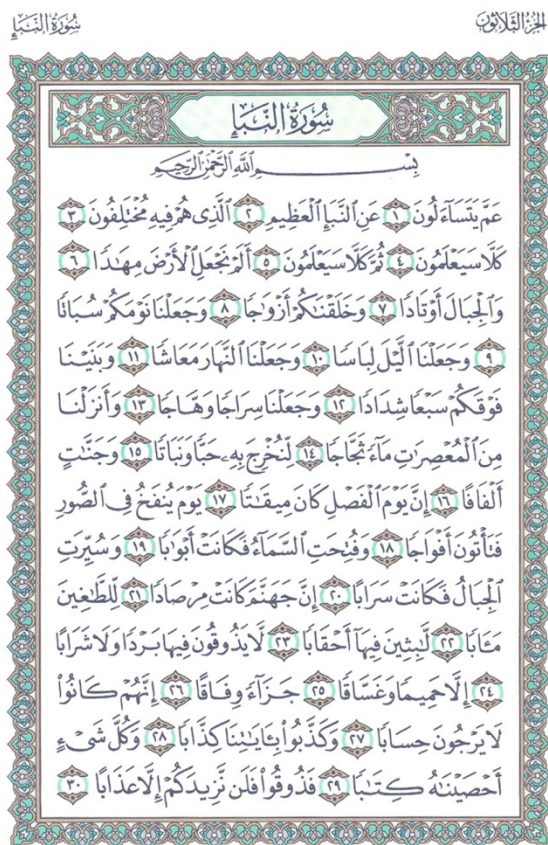 الجزء الثلاثون
سورة النبإ
سُورَةُ النَّبَإِ
بِسْمِ اللَّهِ الرَّحْمَٰنِ الرَّحِيمِ
عَمَّ يَتَسَآءَلُونَ ١ عَنِ ٱلنَّبَإِ ٱلْعَظِيمِ ٢ ٱلَّذِى هُمْ فِيهِ مُخْتَلِفُونَ ٣
كَلَّا سَيَعْلَمُونَ ٤ ثُمَّ كَلَّا سَيَعْلَمُونَ ٥ أَلَمْ نَجْعَلِ ٱلْأَرْضَ مِهَٰدًا ٦
وَٱلْجِبَالَ أَوْتَادًا ٧ وَخَلَقْنَٰكُمْ أَزْوَٰجًا ٨ وَجَعَلْنَا نَوْمَكُمْ سُبَاتًا
٩ وَجَعَلْنَا ٱلَّيْلَ لِبَاسًا ١٠ وَجَعَلْنَا ٱلنَّهَارَ مَعَاشًا ١١ وَبَنَيْنَا
فَوْقَكُمْ سَبْعًا شِدَادًا ١٢ وَجَعَلْنَا سِرَاجًا وَهَّاجًا ١٣ وَأَنزَلْنَا
مِنَ ٱلْمُعْصِرَٰتِ مَآءً ثَجَّاجًا ١٤ لِّنُخْرِجَ بِهِۦ حَبًّا وَنَبَاتًا ١٥ وَجَنَّٰتٍ
أَلْفَافًا ١٦ إِنَّ يَوْمَ ٱلْفَصْلِ كَانَ مِيقَٰتًا ١٧ يَوْمَ يُنفَخُ فِى ٱلصُّورِ
فَتَأْتُونَ أَفْوَاجًا ١٨ وَفُتِحَتِ ٱلسَّمَآءُ فَكَانَتْ أَبْوَٰبًا ١٩ وَسُيِّرَتِ
ٱلْجِبَالُ فَكَانَتْ سَرَابًا ٢٠ إِنَّ جَهَنَّمَ كَانَتْ مِرْصَادًا ٢١ لِّلطَّٰغِينَ
مَـَٔابًا ٢٢ لَّٰبِثِينَ فِيهَآ أَحْقَابًا ٢٣ لَّا يَذُوقُونَ فِيهَا بَرْدًا وَلَا شَرَابًا
٢٤ إِلَّا حَمِيمًا وَغَسَّاقًا ٢٥ جَزَآءً وِفَاقًا ٢٦ إِنَّهُمْ كَانُوا۟
لَا يَرْجُونَ حِسَابًا ٢٧ وَكَذَّبُوا۟ بِـَٔايَٰتِنَا كِذَّابًا ٢٨ وَكُلَّ شَىْءٍ
أَحْصَيْنَٰهُ كِتَٰبًا ٢٩ فَذُوقُوا۟ فَلَن نَّزِيدَكُمْ إِلَّا عَذَابًا ٣٠